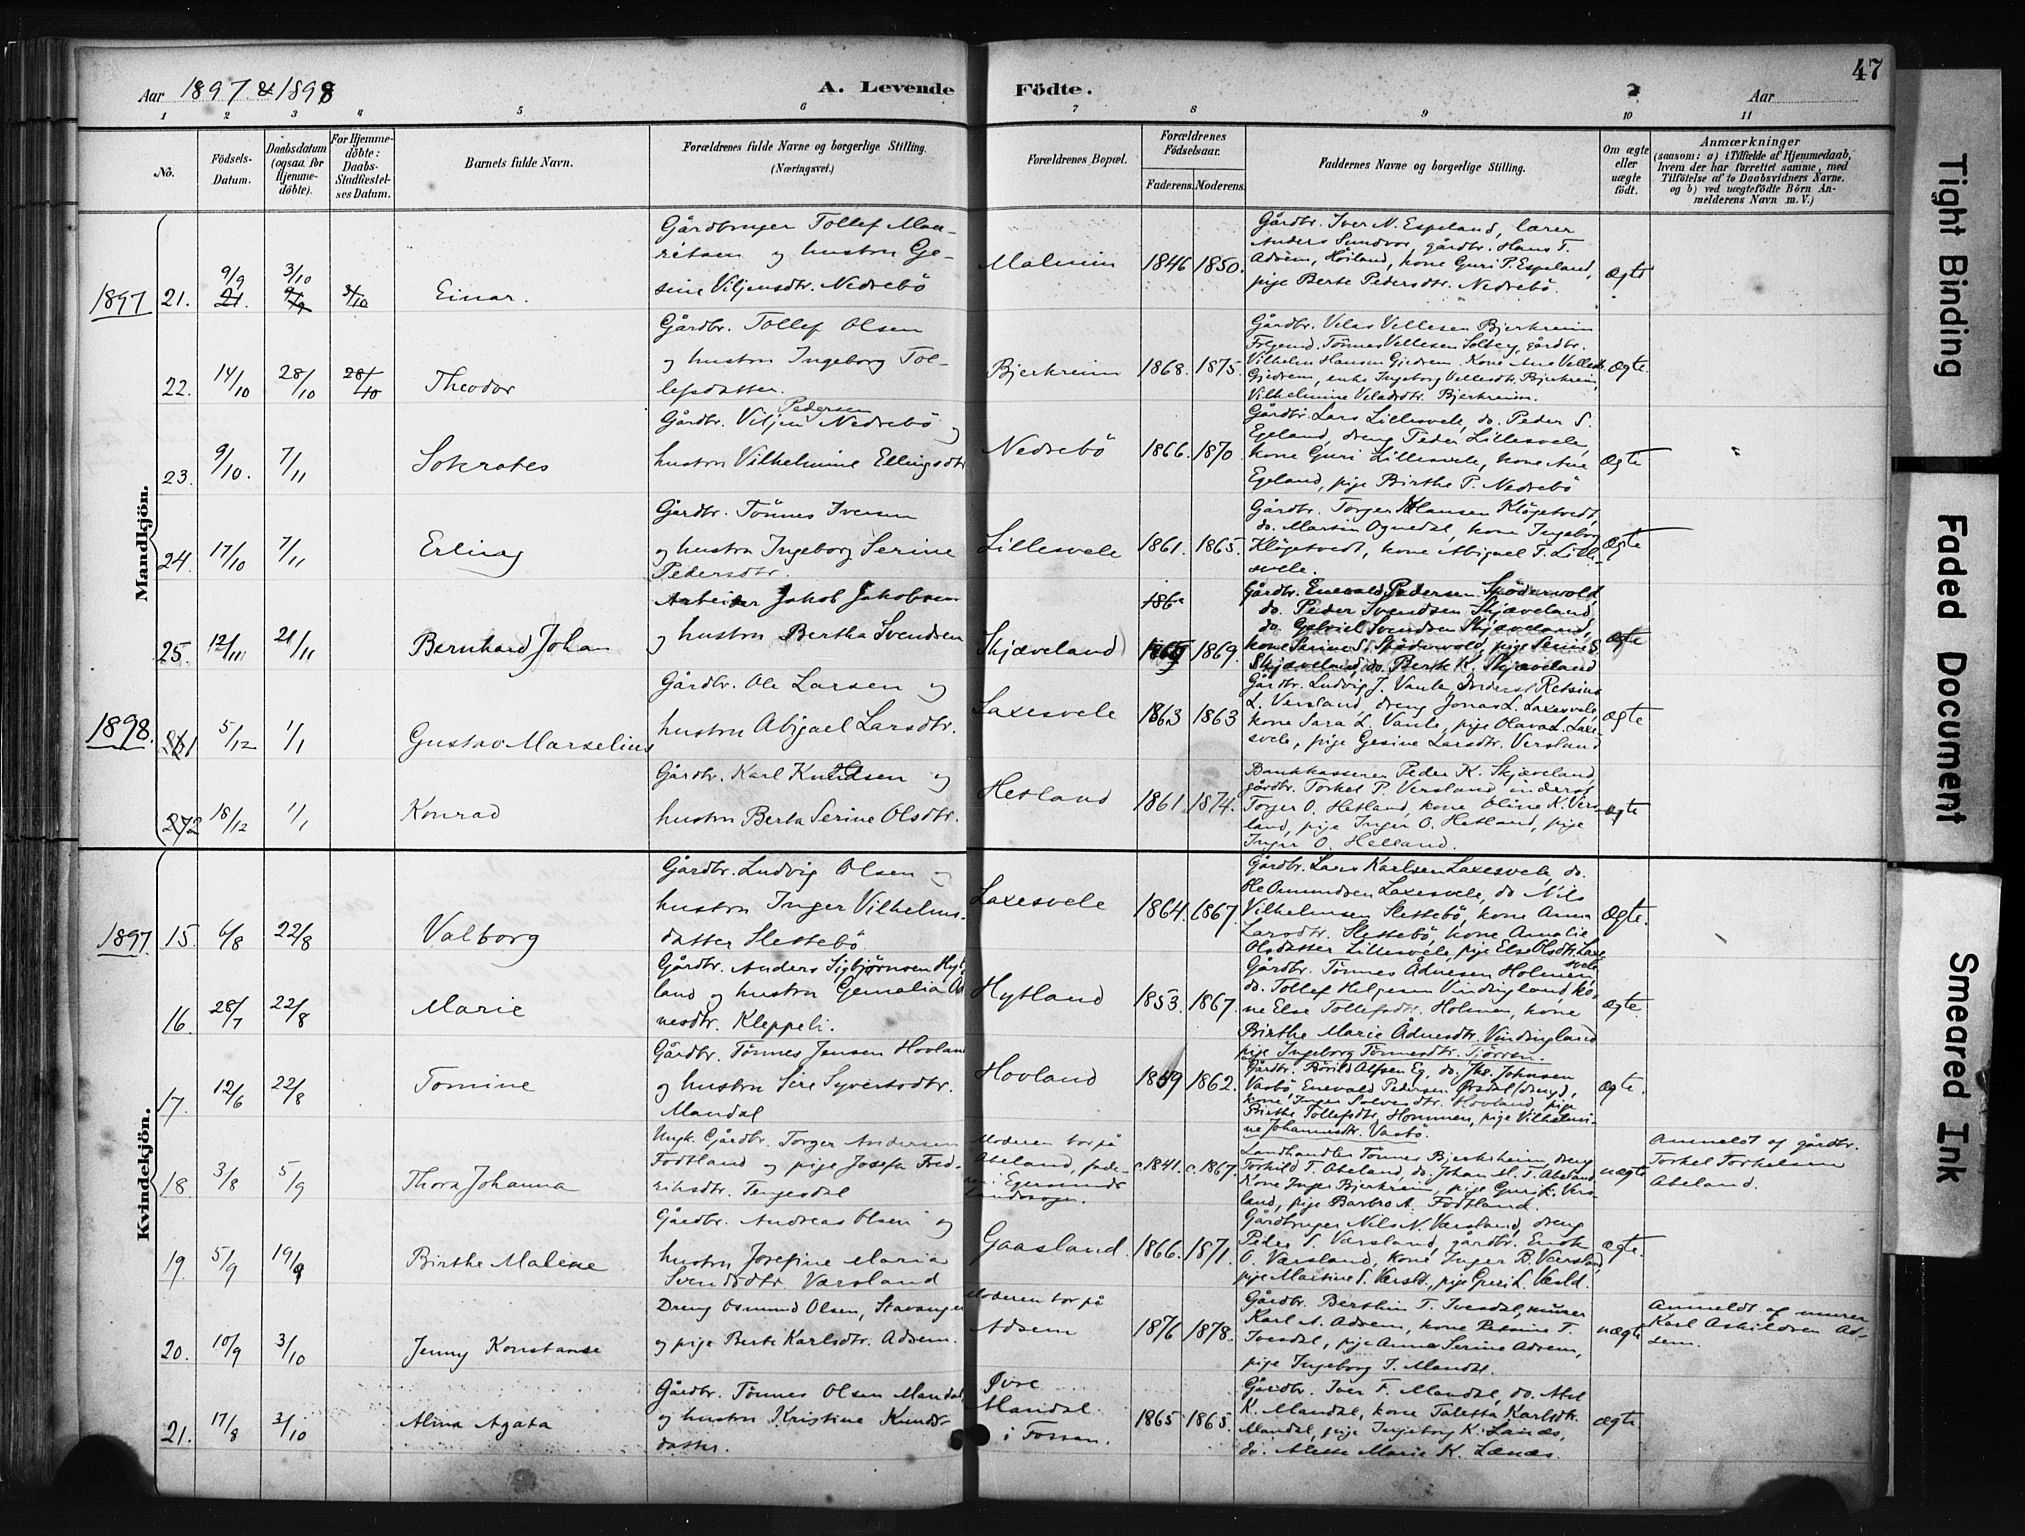 Aar 1897 & 1898
A. Levende Födte.
Aar
47
1 2 3 4 5 6 7 8 9 10 11
No.
Födsels-Datum.
Daabsdatum (ogsaa for Hjemmedöbte).
For Hjemmedöbte: Daabs-Stadfæstelses Datum.
Barnets fulde Navn.
Forældrenes fulde Navne og borgerlige Stilling.
(Næringsvei.)
Forældrenes Bopæl.
Forældrenes Födselsaar.
Faderens. Moderens.
Faddernes Navne og borgerlige Stilling.
Om ægte eller uægte födt.
Anmærkninger
(saasom: a) i Tilfælde af Hjemmedaab, hvem der har forrettet samme, med Tilföielse af to Daabsvidners Navne. og b) ved uægtefödte Börn Anmelderens Navn m. V.)
Mandkjön.
1897 21. 9/9 3/10 Einar.
Gårdbruger Tollef Mauritsen og hustru Gesine Viljensdtr. Nedrebö
Malmin 1846 1850.
Gårdbr. Iver N. Espeland, lærer
Anders Sundvor, gårdbr. Hans T.
Adsem, Höiland, kone Guri P. Espeland,
pige Berte Pedersdtr. Nedrebö.
Ægte
22. 14/10 28/10 28/10 Theodor
Gårdbr. Tollef Olsen
og hustru Ingeborg Tollefsdatter.
Bjerkreim 1868. 1875.
Gårdbr. Velas Vellesen Bjerkreim
Vilhelm Hansen Gjedrem, Kone Ane
Gjedrem, enke Ingeborg Vellesdtr. Bjerkreim,
Vilhelmine Veladsdtr. Bjerkreim.
Ægte.
23. 9/10. 7/11 Sokrates
Gårdbr. Viljen Pedersen Nedrebö og
hustru Vilhelmine Ellingsdtr
Nedrebö 1866. 1870
Gårdbr. Lars Lillesvele, do. Peder S.
Egeland, dreng Peder Lillesvele,
kone Guri Lillesvele, kone Ane
Egeland, pige Birthe P. Nedrebö
Ægte
24. 17/10 7/11 Erling
Gårdbr. Tönnes Iversen
og hustru Ingeborg Serine
Pedersdtr.
Lillesvele 1861. 1865.
Gårdbr. Torger Hansen Klögetvedt,
do. Martin Ognedal, kone Ingeborg
Klögetvedt, kone Abigael T. Lillesvele.
Ægte
25. 12/11 21/11 Bernhard Johan
Arbeider Jakob Jakobsen
og hustru Bertha Svendsen
Skjæveland 1869.
Gårdbr. Enevald Pedersen
do. Peder Svendsen Skjæveland,
do. Gabriel Svendsen Skjæveland,
kone Serine S. pige Serine S.
Skjæveland, do. Berte K. Skjæveland
ægte
1898. 1 5/12 1/1 Gustav Marselius
Gårdbr. Ole Larsen og
hustru Abigael Larsdtr.
Laxesvele 1863 1863
Gårdbr. Ludvig J. Vaule, Inderst Retsius
L. Versland, dreng Jonas L. Laxesvele,
kone Sara L. Vaule, pige Olava L. Laxesvele, pige Gesine Larsdtr. Versland
Ægte
2 18/12 1/1 Konrad
Gårdbr. Karl Knudsen og
hustru Berta Serine Olsdtr.
Hetland 1861 1874.
Bankkasserer Peder K. Skjæveland,
gårdbr. Torkel P. Versland, inderst
Torger O. Hetland, kone Oline K. Versland, pige Inger O. Hetland, pige
Inger O. Helland.
ægte
Kvindekjön.
1897. 15. 6/8 22/8 Valborg
Gårdbr. Ludvig Olsen og
hustru Inger Vilhelmsdatter Slettebö
Laxesvele 1864. 1867.
Gårdbr. Lars Karlsen Laxesvele, do.
Ole Omundsen Laxesvele, do Nils
Vilhelmsen Slettebö, kone Anna
Larsdtr. Slettebö, kone Amalie
Olsdatter Lillesvele, pige Else Olsdtr. Laxesvele
Ægte.
16. 28/7 22/8 Marie
Gårdbr. Anders Sigbjørnsen Hytland og hustru Gemalia Adnesdtr. Kleppeli.
Hytland 1853. 1867.
Gårdbr. Tönnes Ådnesen Holmen,
do. Tollef Helgesen Vindingland, kone Else Tollefsdtr. Holmen, kone
Birthe Marie Ådnesdtr. Vindingland
pige Ingeborg Tönnesdtr.
Ægte.
17. 12/6 22/8 Tomine
Gårdbr. Tönnes Jensen Hovland
og hustru Sire Syvertsdtr.
Mandal
Hovland 1859 1862.
Gårdbr. Alfsen Eg, do. Jhs. Johnsen
Vasbö, Enevald Pedersen Ørsdal (dreng),
kone Inger Salvesdtr. Hovland, pige
Birthe Tollefsdtr. Hommen, pige Vilhelmine Johannesdtr. Vasbö.
Ægte.
18 3/8 5/9 Thora Johanna
Ungk. Gårdbr. Torger Andersen
Fodtland og pige Josefa Fredriksdtr. Tengesdal
Moderen bor på Abeland, faderen Egersunds Landsogn.
c.1841. c.1867.
Landhandler Tönnes Bjerkreim, dreng
Torkild T. Abeland, do. Johan M. T. Abeland
Kone Inger Bjerkreim, pige Guri L. Versland, pige Barbro A. Fodtland.
uægte
Anmeldt af gårdbr.
Torkel Torkelsen
Abeland.
19. 5/9 19/9 Birthe Malene
Gårdbr. Andreas Olsen og
hustru Josefine Maria
Svendsdtr. Værsland
Gaasland. 1866. 1871.
Gårdbruger Nils N. Værsland, dreng
Peder S. Værsland, gårdbr. Enok
O. Værsland, kone Inger B. Værsland,
pige Martine S. Værsld. pige Guri L. Væsld.
ægte.
20. 10/9 3/10 Jenny Konstanse
Dreng Osmund Olsen, Stavanger
og pige Berte Karlsdtr. Adsem.
Moderen bor på
Adsem 1876 1878.
Gårdbr. Berthin T. Ivesdal, murer
Karl A. Adsem, kone Retsine T.
Ivesdal, pige Anna Serine Adsem,
pige Ingeborg T. Mandal.
uægte
Anmeldt af murer
Karl Askildsen Adsem.
21. 17/8 3/10 Alma Agata
Gårdbr. Tönnes Olsen Mandal
og hustru Kristine Knudsdatter.
Øvre
Mandal
i Fossan.
1865 1865.
Gårdbr. Iver F. Mandal, do. Abel
K. Mandal, kone Taletta Karlsdtr.
Mandal, pige Ingeborg K. Lanæs,
do. Alette Marie K. Lanæs.
ægte
Tight Binding
Faded Document
Smeared Ink